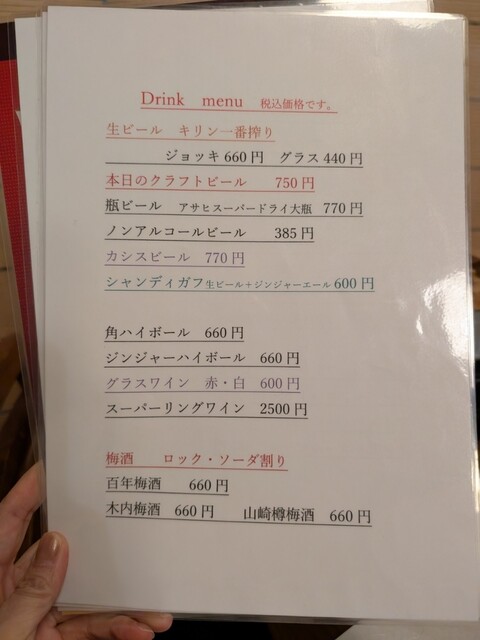 Drink menu 税込価格です。
生ビール キリン一番搾り
ジョッキ 660円 グラス 440円
本日のクラフトビール 750円
瓶ビール アサヒスーパードライ大瓶 770円
ノンアルコールビール 385円
カシスビール 770円
シャンディガフ生ビール+ジンジャーエール 600円
角ハイボール 660円
ジンジャーハイボール 660円
グラスワイン 赤・白 600円
スーパーリングワイン 2500円
梅酒 ロック・ソーダ割り
百年梅酒 660円
木内梅酒 660円 山崎樽梅酒 660円